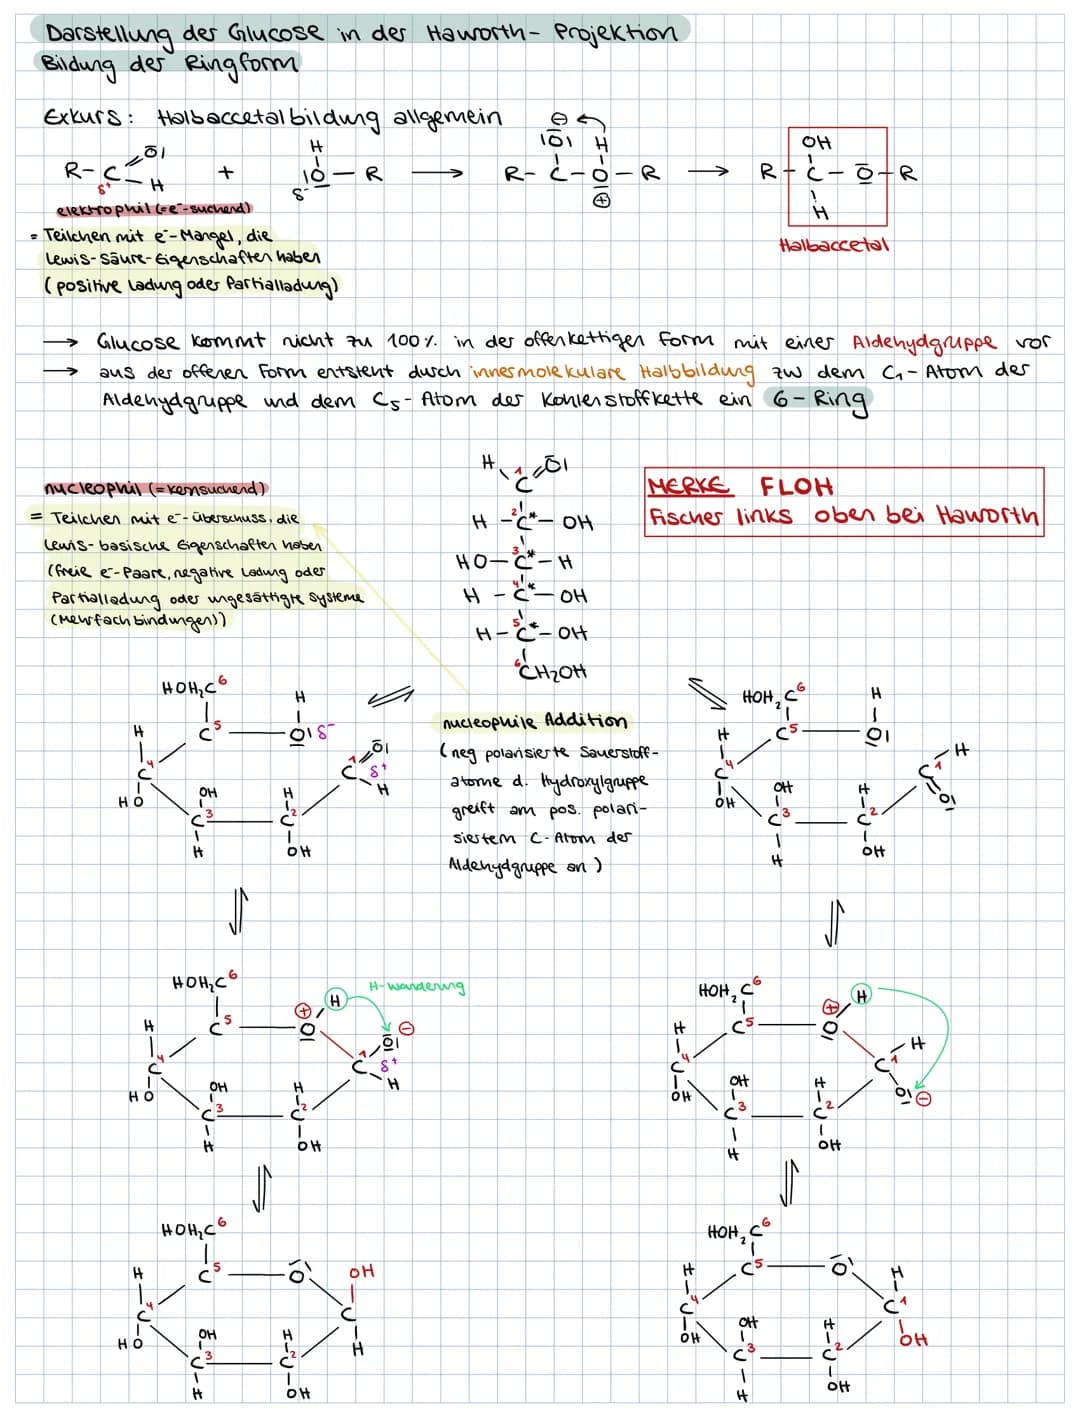 Darstellung der Glucose in der Haworth- Projektion
Bildung der Ringform
Exkurs: Halbaccetalbildung allgemein
R-C
O
H
δ+
+
H
IO-R
δ-
→
⊖
IOI H
R-C-O-R
⊕
→
OH
R-C-O-R
H
elektrophil (=e⁻-suchend)
Halbaccetal
= Teilchen mit e⁻-Mangel, die
Lewis-Säure-Eigenschaften haben
(positive Ladung oder Partialladung)
→ Glucose kommt nicht zu 100% in der offenkettigen Form mit einer Aldehydgruppe vor
→ aus der offenen Form entsteht durch innermolekulare Halbbildung zw dem C₁-Atom der
Aldehydgruppe und dem C₅-Atom der Kohlenstoffkette ein 6-Ring
nucleophil (=kernsuchend)
= Teilchen mit e⁻-überschuss, die
Lewis-basische Eigenschaften haben
(freie e⁻-Paare, negative Ladung oder
Partialladung oder ungesättigte Systeme
(Mehrfachbindungen))
H 1 OI
C
H-2C*-OH
HO-3C*-H
H-4C*-OH
H-5C*-OH
6CH₂OH
MERKE FLOH
Fischer links oben bei Haworth
HOH₂C6
H
H
C5
OIδ-
4
C
OI
1
C δ+
H
HO
OH
C3
H
H
C2
OH
nucleophile Addition
(neg polarisierte Sauerstoff-
atome d. Hydroxylgruppe
greift am pos. polari-
siertem C-Atom der
Aldehydgruppe an)
HOH₂C6
H
H
C5
OI
4
C
H
C1
OI
OH
OH
C3
H
H
C2
OH
HOH₂C6
H
H-Wanderung
⊕
H
C5
O
⊖
OI
4
C
1
C δ+
H
HO
OH
C3
H
H
C2
OH
HOH₂C6
H
⊕
H
C5
O
4
C
H
C1
OI ⊖
OH
OH
C3
H
H
C2
OH
HOH₂C6
H
C5
O
OH
4
C
C
H
HO
OH
C3
H
H
C2
OH
HOH₂C6
H
C5
O
H
4
C
C1
OH
OH
OH
C3
H
H
C2
OH